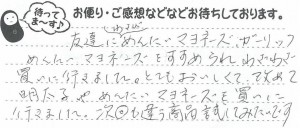 待ってま〜す♪
お便り・ご感想などなどお待ちしております。
友達にめんたいマヨネーズ、ガーリック
めんたいマヨネーズをすすめられ、わざわざ
買いに行きました。とてもおいしくて、改めて
明太子やめんたいマヨネーズを買いに
行きました。次回も違う商品試してみたいです